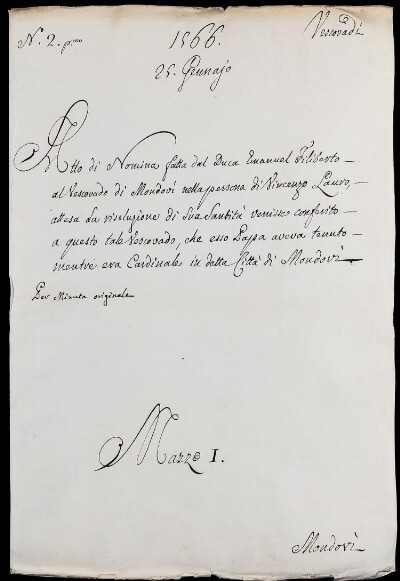 N. 2. p.mo
1566.
Vescovadi
25. Gennajo
Atto di Nomina fatta dal Duca Emanuel Filiberto
al Vescovado di Mondovì nella persona di Vincenzo Lauro,
attesa la risoluzione di Sua Santità venisse conferito
a questo tale Vescovado, che esso Papa aveva tenuto
mentre era Cardinale in detta Città di Mondovì
Per Minuta originale
Mazzo I.
Mondovì